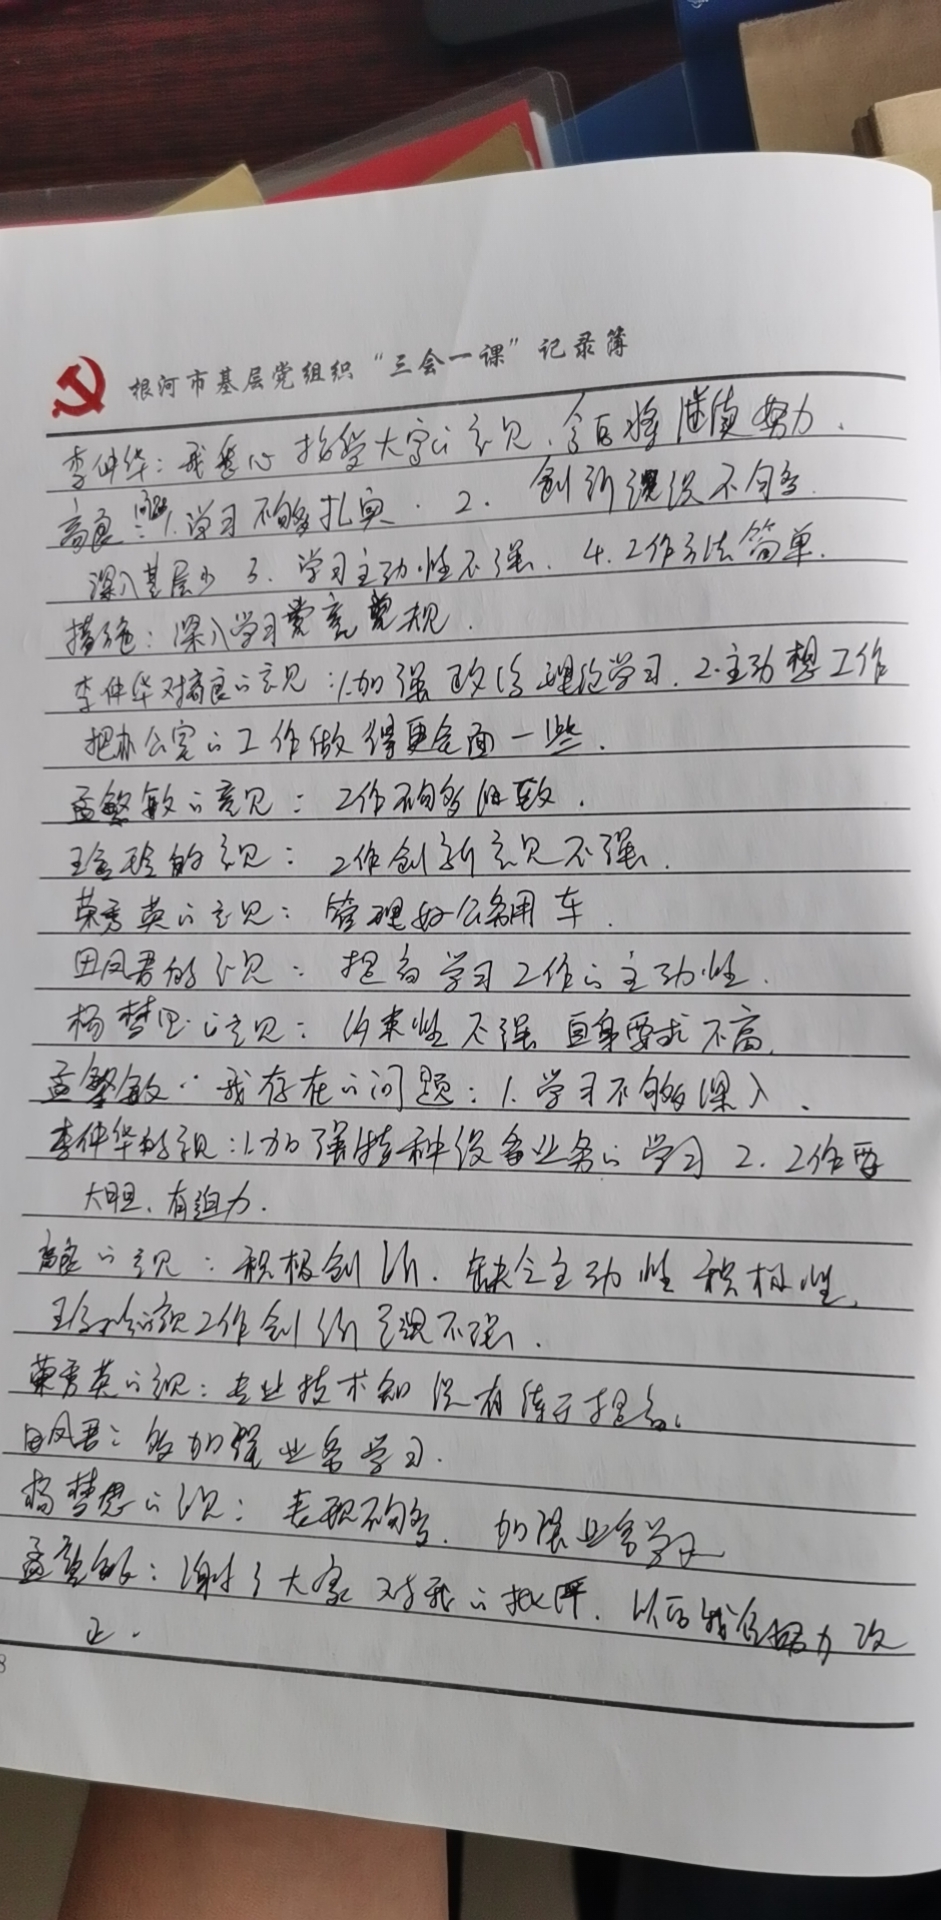 根河市基层党组织“三会一课”记录簿
李仲华：我悉心接受大家的意见，今后将继续努力。
高良：问题1.学习不够扎实。2.创新意识不够
深入基层少 3.学习主动性不强、4.工作方法简单。
措施：深入学习党章党规。
李仲华对高良的意见：1.加强政治理论学习。2.主动想工作
把办公室的工作做得更全面一些。
孟繁敏的意见：工作不够细致。
的意见：工作创新意见不强。
荣秀英的意见：管理好公务用车。
田凤君的意见：提高学习工作的主动性。
杨梦思的意见：约束性不强 自身要求不高。
孟繁敏：我存在的问题：1.学习不够深入。
李仲华的意见：1.加强特种设备业务的学习 2.工作要
大胆、有迫力。
高良的意见：积极创新、缺乏主动性积极性。
意见工作创新意识不强。
荣秀英的意见：专业技术知识有待于提高。
田凤君：加强业务学习。
杨梦思的意见：表现不够。加强业务学习
孟繁敏：谢谢大家对我的批评，以后我会努力改
正。
8